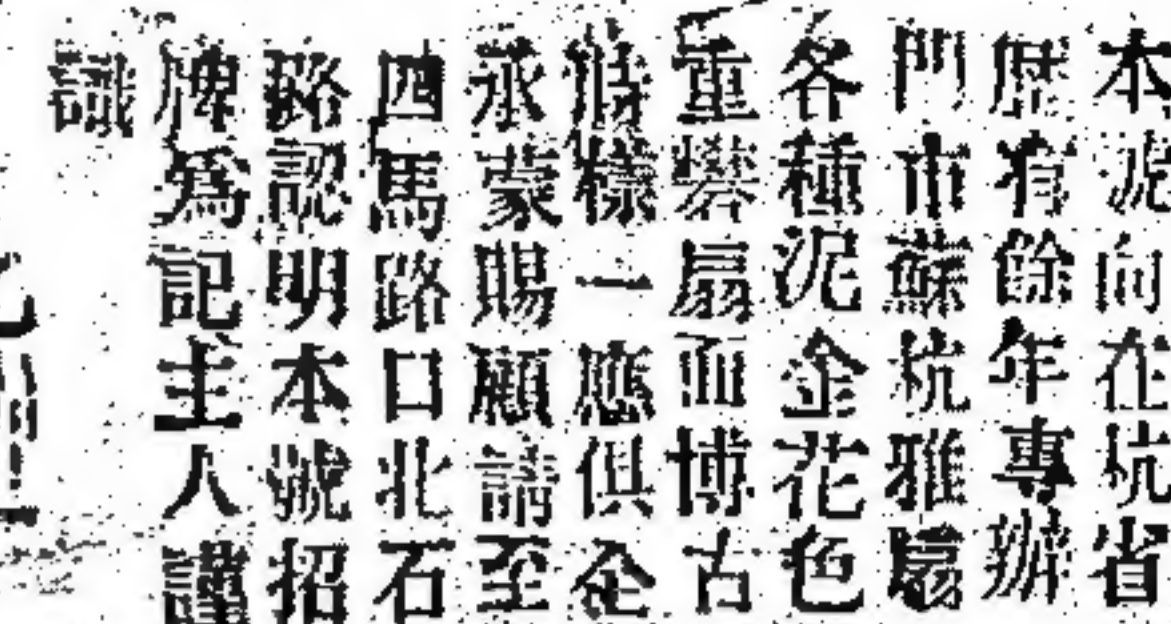 本號向在杭省
歴有餘年專辦
門市蘇杭雅扇
各種泥金花色
重礬扇面博古
樣一應俱全
承蒙賜顧請至
四馬路口北石
路認明本號招
牌爲記主人謹
識